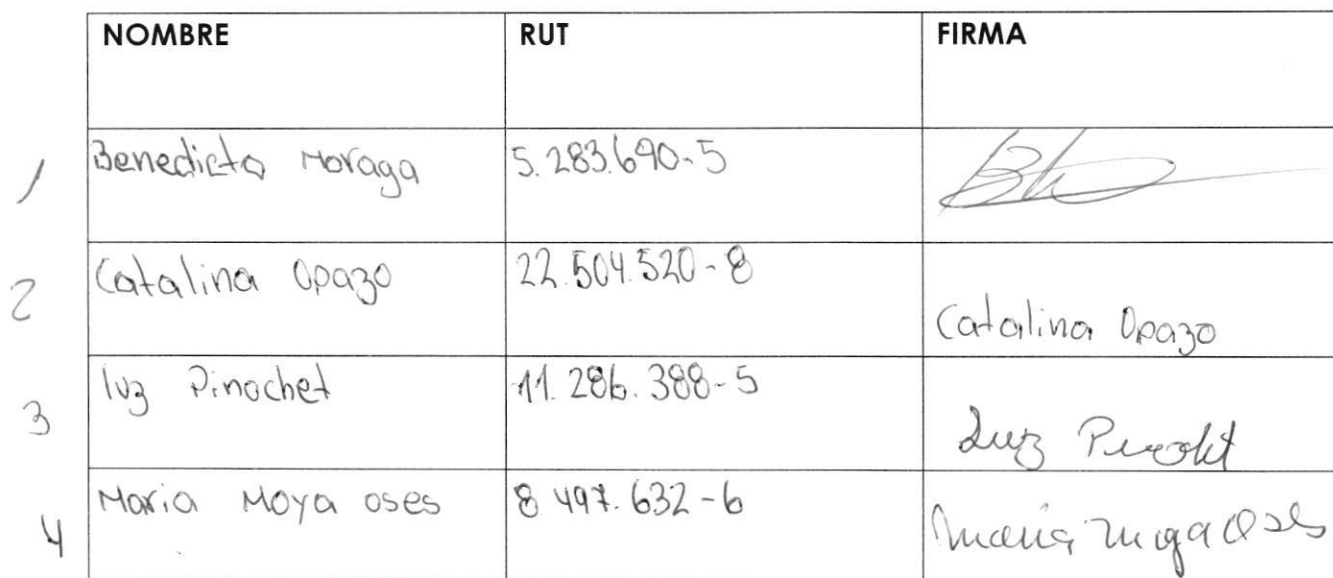 NOMBRE RUT FIRMA
1 Benedicto Moraga 5.283.690-5
2 Catalina Opazo 22.504.520-8 Catalina Opazo
3 luz Pinochet 11.286.388-5 Luz
4 Maria Moya oses 8 497.632-6 Maria Moya Oses